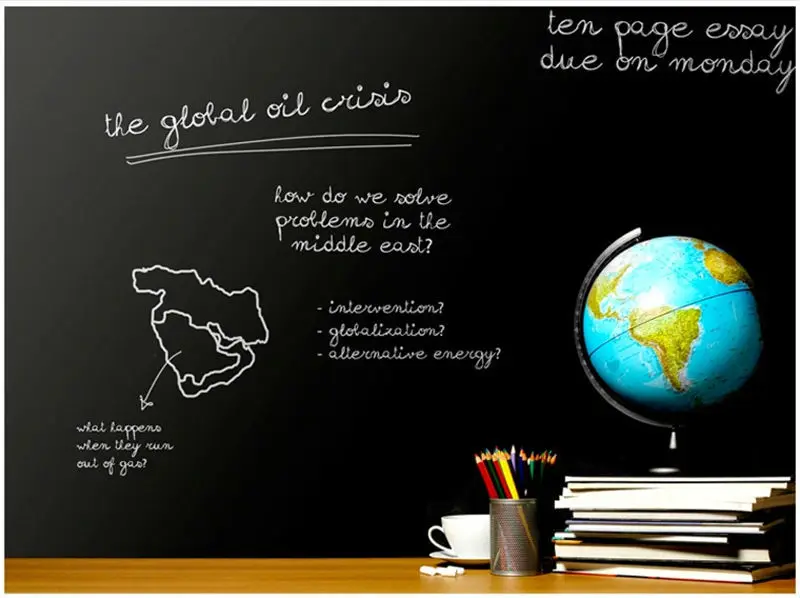 ten page essay
due on monday
the global oil crisis
how do we solve
problems in the
middle east?
- intervention?
- globalization?
- alternative energy?
what happens
when they run
out of gas?